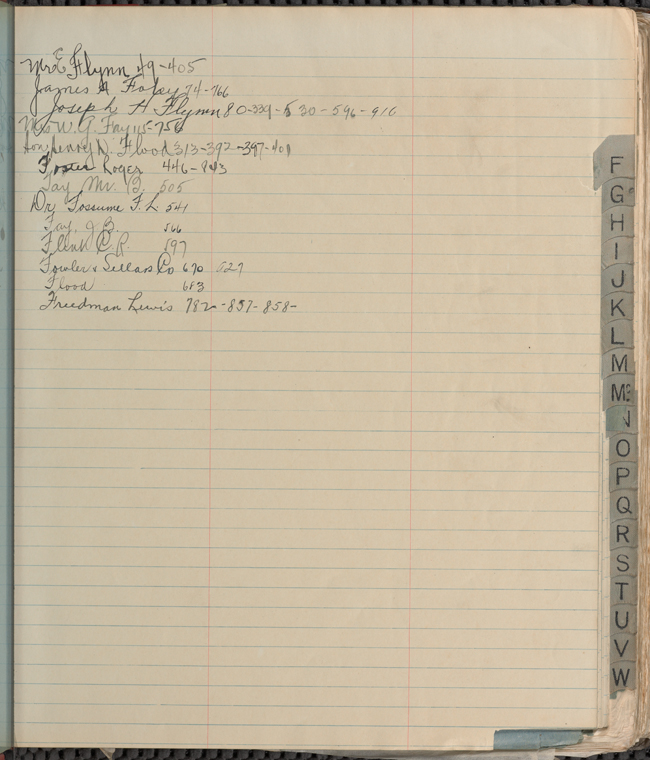 Mrs E Flynn 49-405
James A Fahey 74-766
Joseph H Flynn 80-339-530-596-910
Mrs W. G. Fay 115-756
Hon Henry D. Flood 313-392-397-401
Foster Roger 446-843
Fay Mr. B. 505
Dr Fossume F. L. 541
Fay, J. B. 566
Flenk C. R. 597
Fowler & Sellars Co 670 527
Flood 683
Freedman Lewis 782-857-858-
F
G
H
I
J
K
L
M
Mc
N
O
P
Q
R
S
T
U
V
W